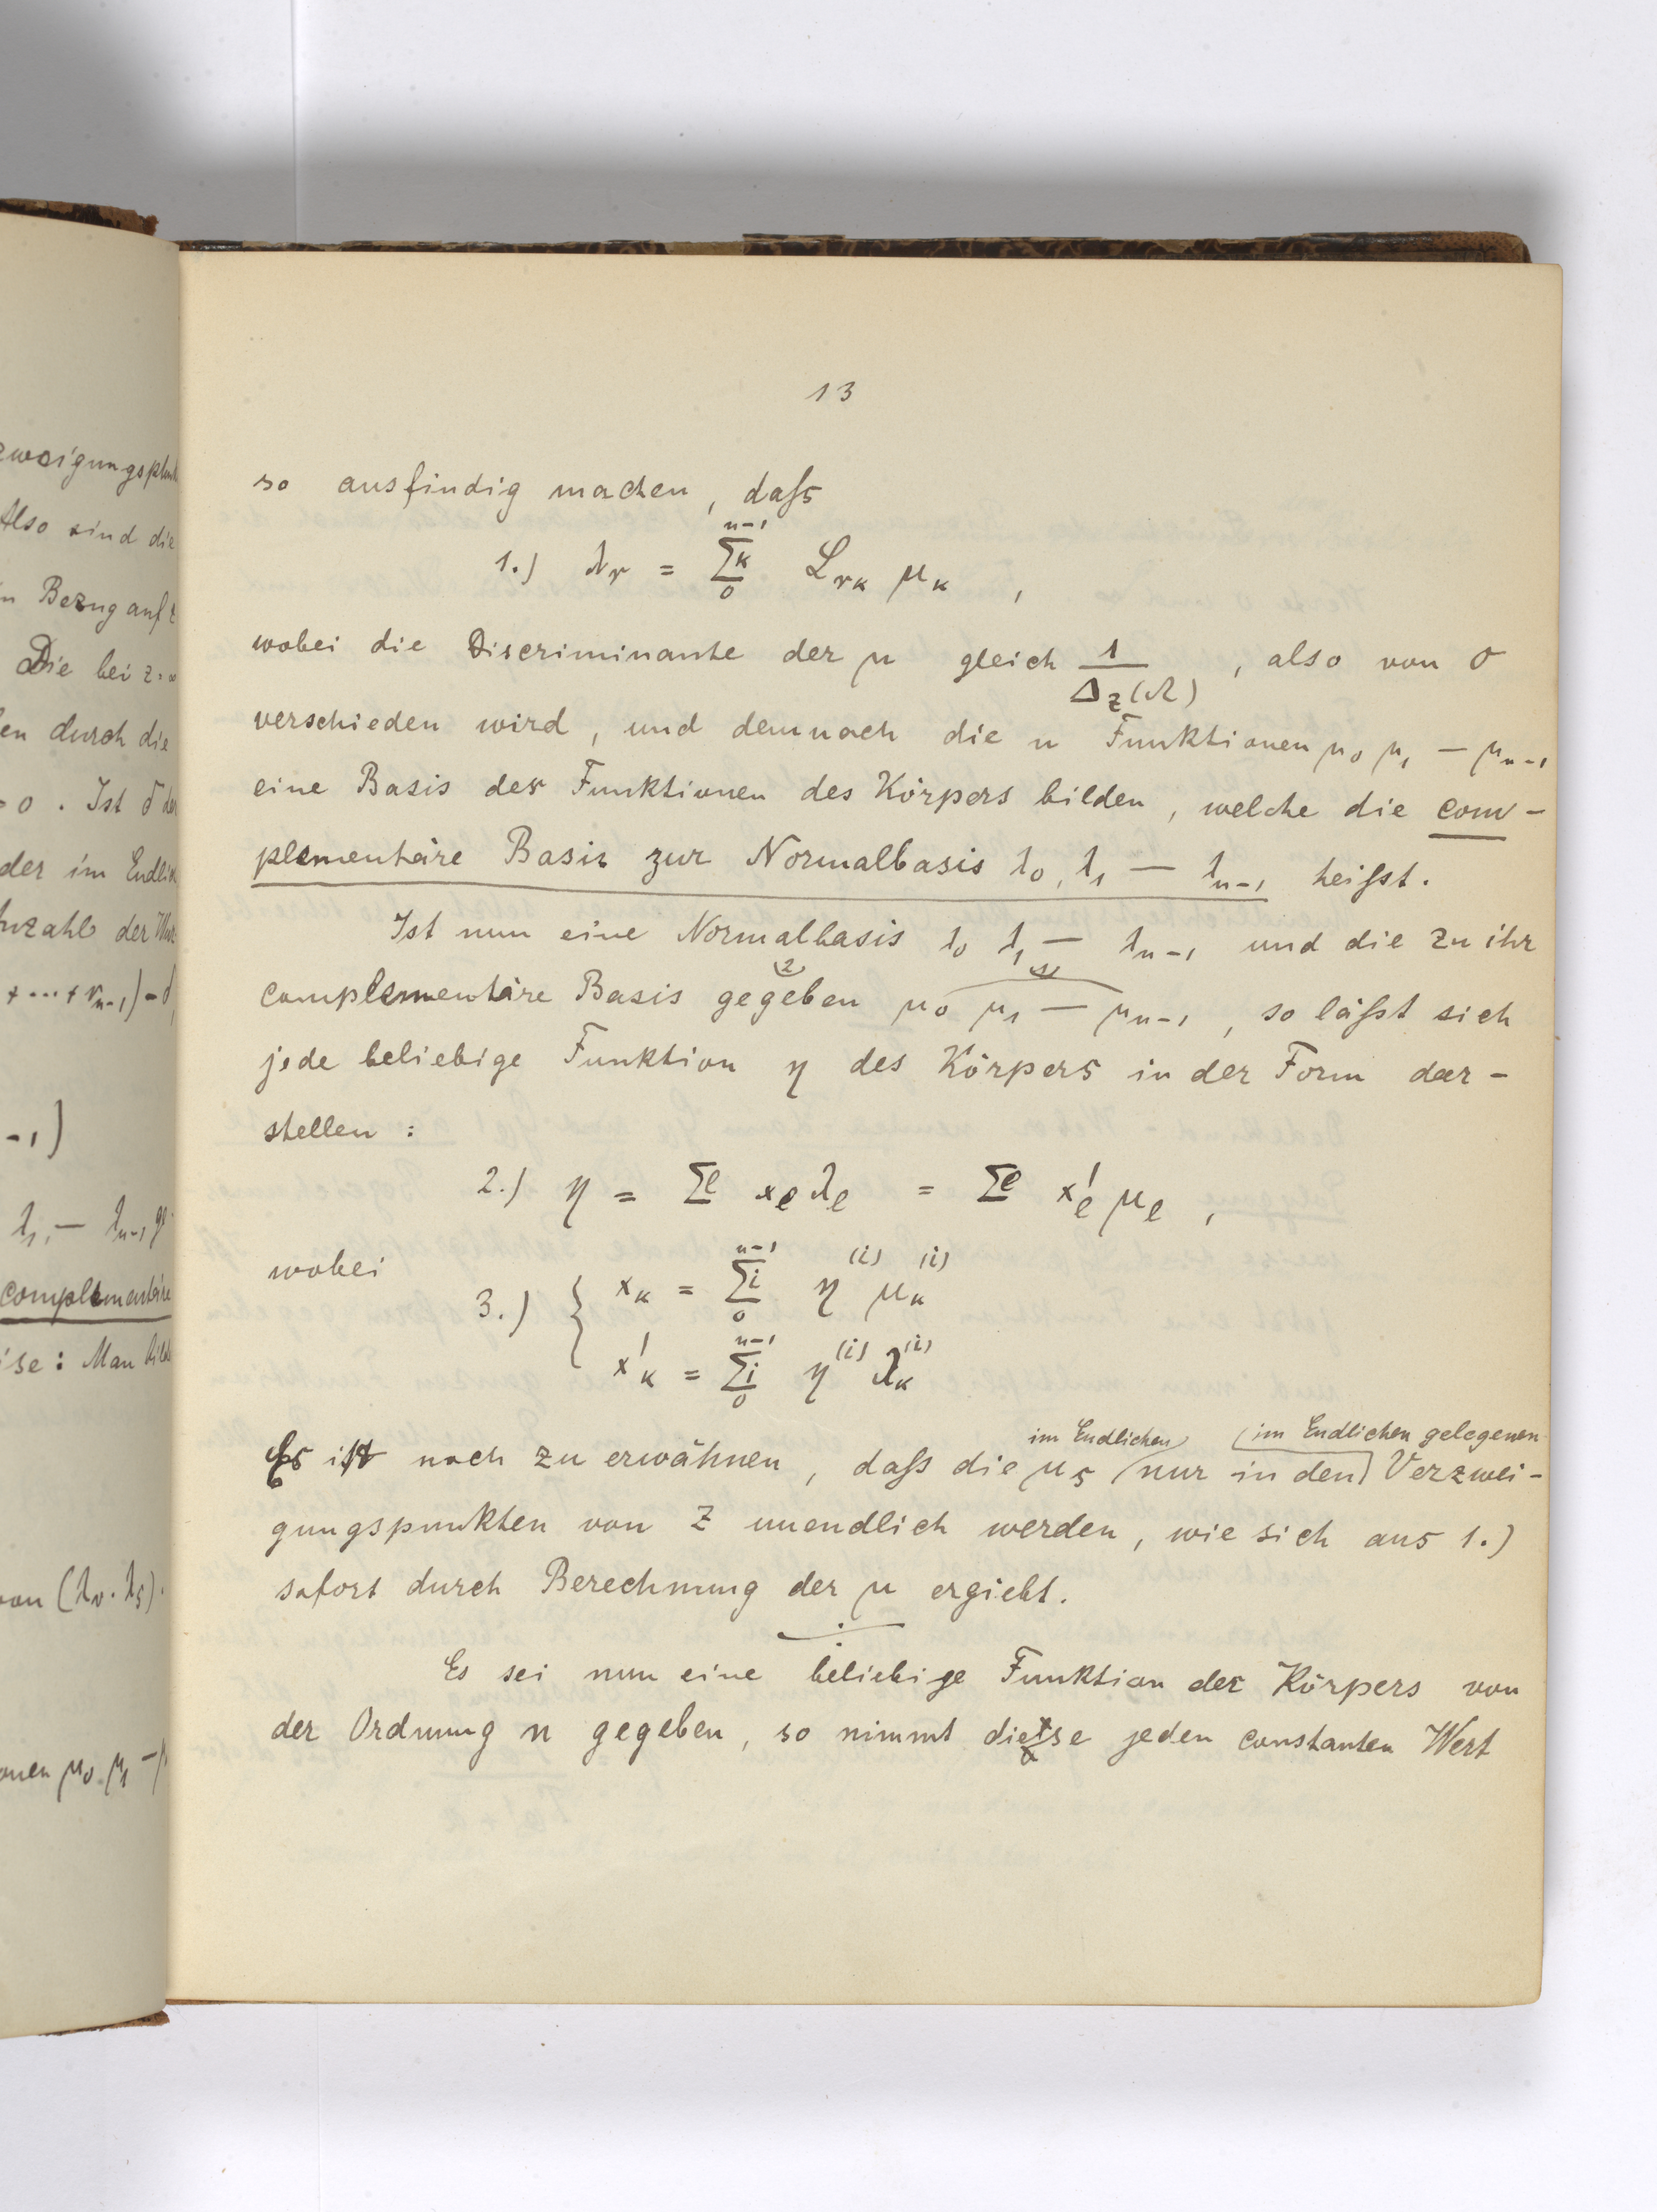 zweigungspkt
Also sind die
n Bezug auf z
Die bei z=∞
en durch die
=0. Ist δ der
der im Endlich
nzahl der
+...+ r_{n-1}) - δ,
-1)
λ_1, — λ_{n-1} ge
complementäre
ise: Man bilde
von (λ_r · λ_s).
onen μ_0 μ_1 —
13
so ausfindig machen, daſs
1.) λ_r = Σ^k_{0}^{n-1} L_{rk} μ_k ,
wobei die Discriminante der μ gleich 1/Δ_z(Ω) , also von 0
verschieden wird, und demnach die n Funktionen μ_0 μ_1 — μ_{n-1}
eine Basis der Funktionen des Körpers bilden, welche die com-
plementäre Basis zur Normalbasis λ_0, λ_1 — λ_{n-1} heiſst.
Ist nun eine Normalbasis λ_0 λ_1 — λ_{n-1} und die zu ihr
complementäre Basis gegeben (2) μ_0 μ_1 — μ_{n-1} (1), so läſst sich
jede beliebige Funktion η des Körpers in der Form dar-
stellen :
2.) η = Σ^e x_e λ_e = Σ^e x'_e μ_e ,
wobei
3.) { x_k = Σ^i_{0}^{n-1} η^{(i)} μ_k^{(i)}
x'_k = Σ^i_{0}^{n-1} η^{(i)} λ_k^{(i)}
im Endlichen im Endlichen gelegenen
Es ist noch zu erwähnen, daſs die μ_s nur in den Verzwei-
gungspunkten von z unendlich werden, wie sich aus 1.)
sofort durch Berechnung der μ ergiebt.
Es sei nun eine beliebige Funktion des Körpers von
der Ordnung n gegeben, so nimmt diese jeden constanten Wert